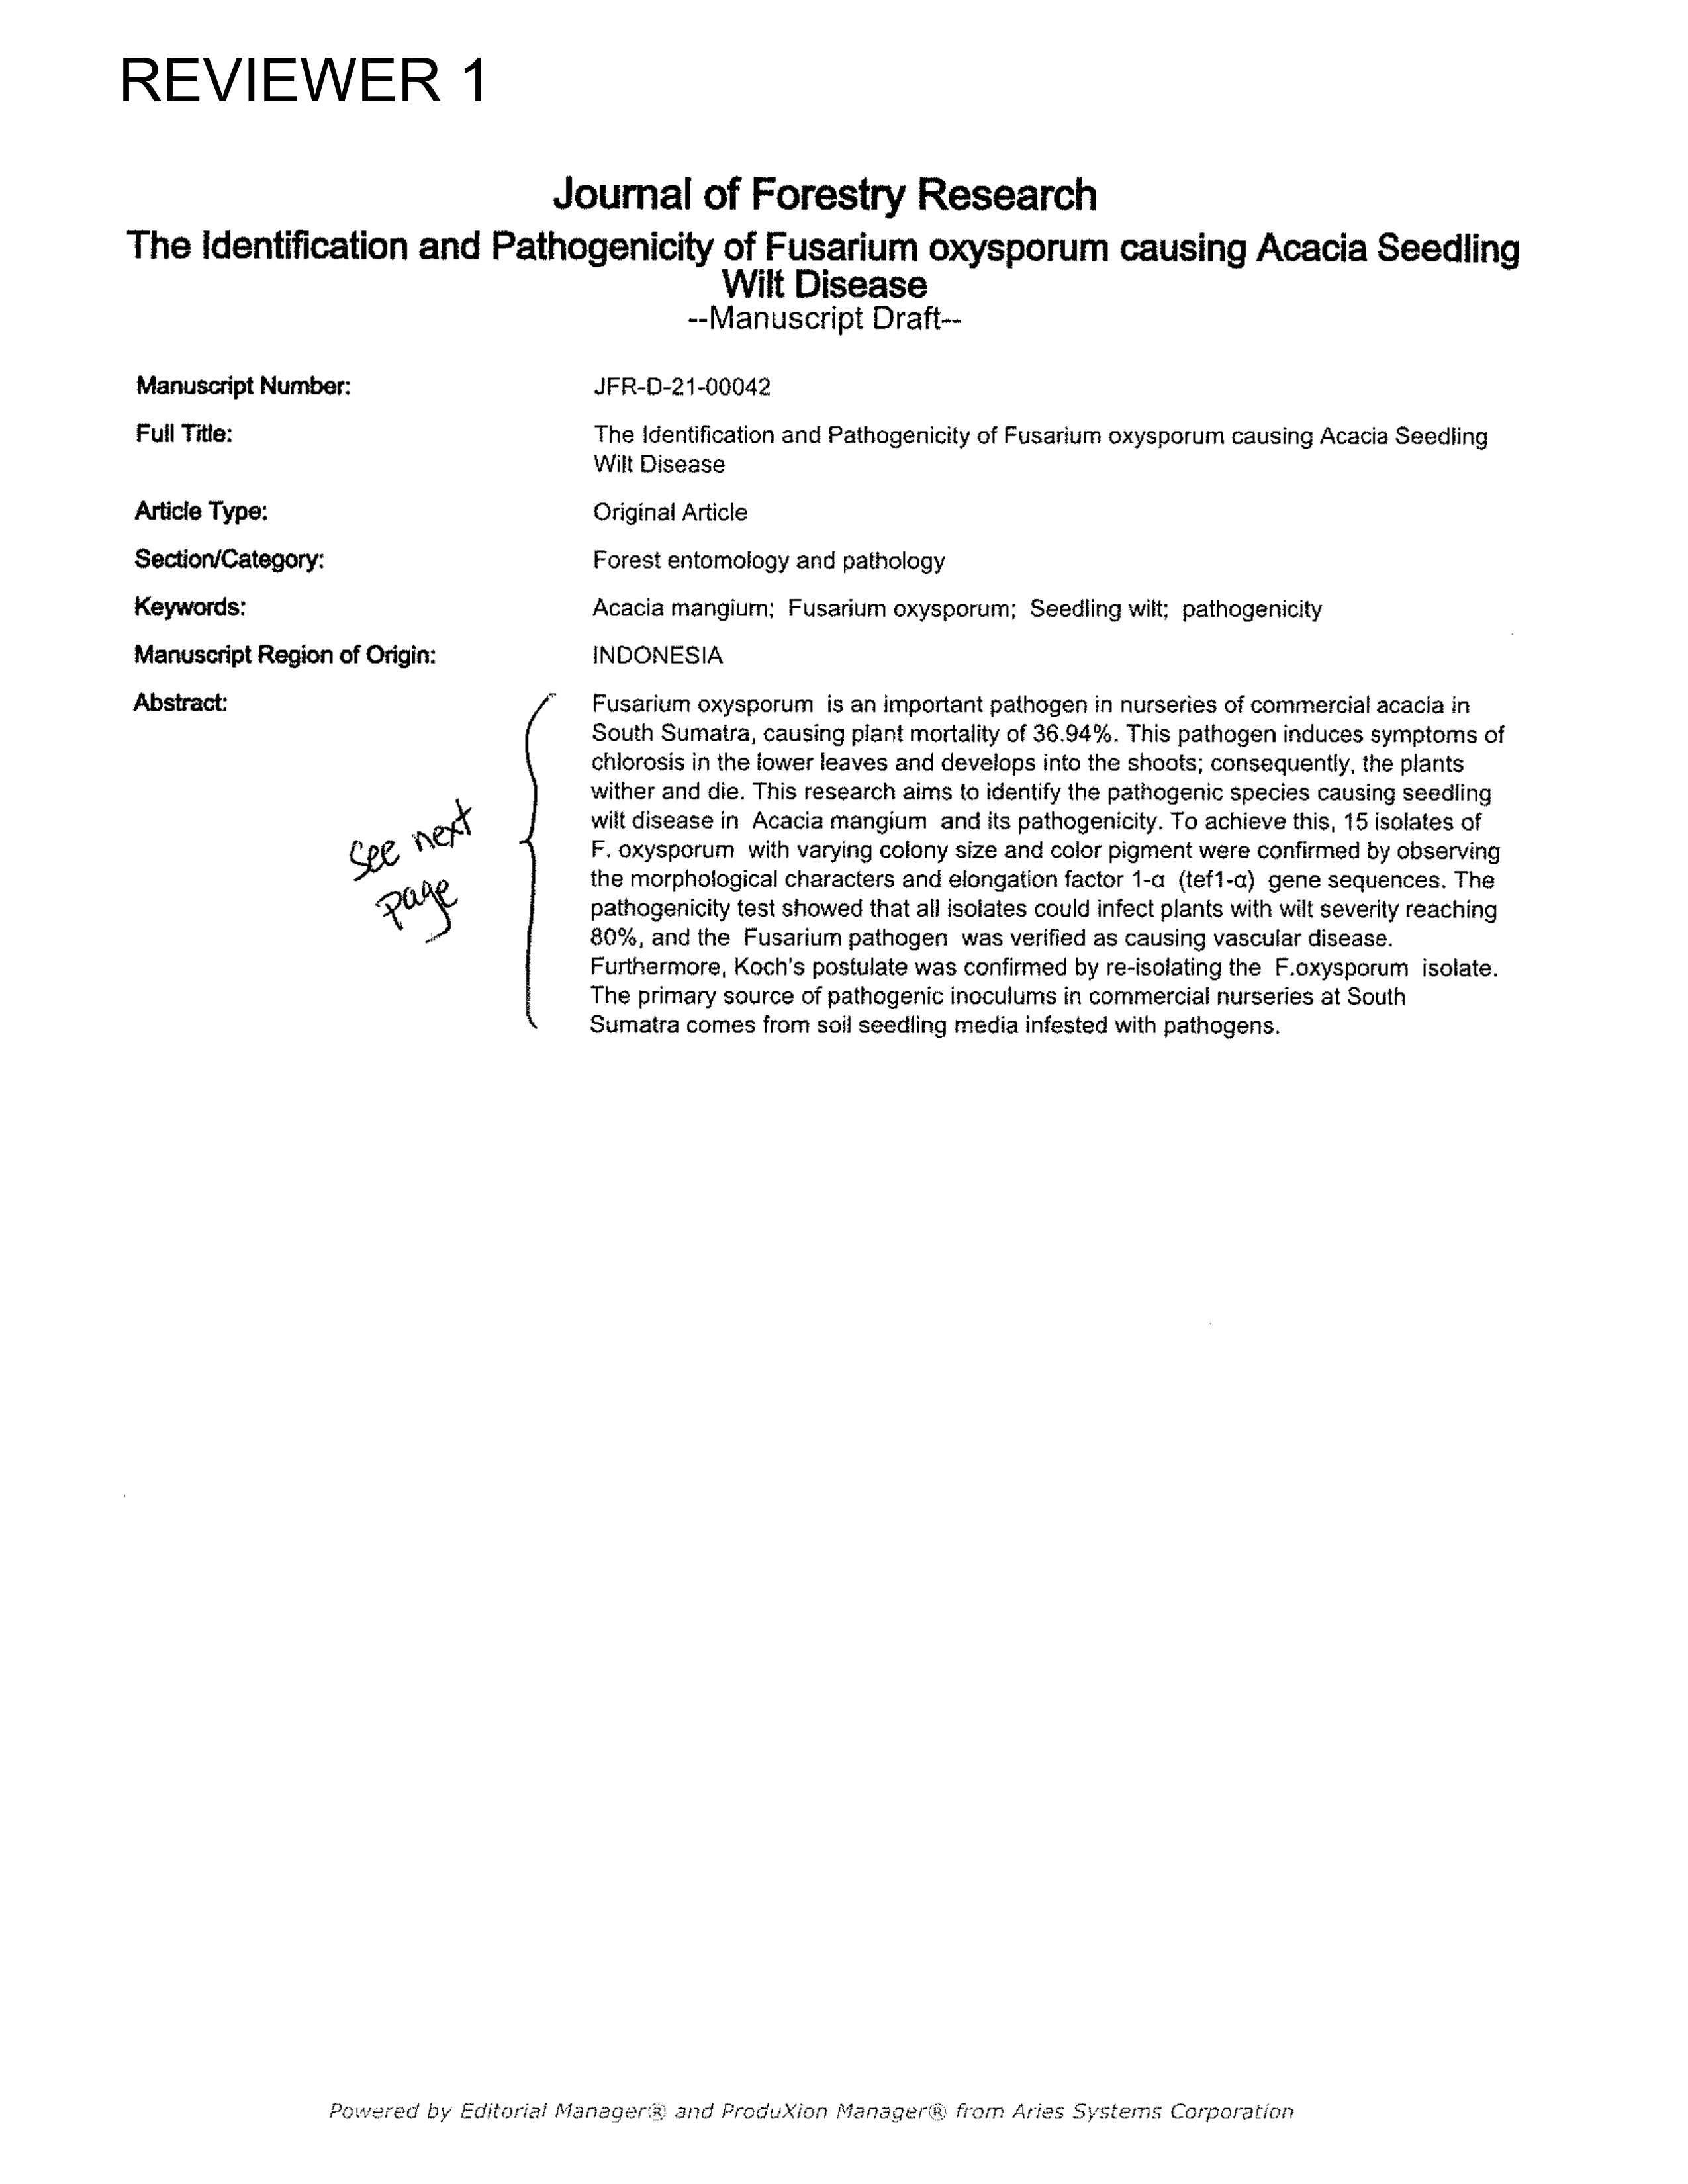 REVIEWER 1
Journal of Forestry Research
The Identification and Pathogenicity of Fusarium oxysporum causing Acacia Seedling
Wilt Disease
--Manuscript Draft--
Manuscript Number: JFR-D-21-00042
Full Title: The Identification and Pathogenicity of Fusarium oxysporum causing Acacia Seedling
Wilt Disease
Article Type: Original Article
Section/Category: Forest entomology and pathology
Keywords: Acacia mangium; Fusarium oxysporum; Seedling wilt; pathogenicity
Manuscript Region of Origin: INDONESIA
Abstract: Fusarium oxysporum is an important pathogen in nurseries of commercial acacia in
South Sumatra, causing plant mortality of 36.94%. This pathogen induces symptoms of
chlorosis in the lower leaves and develops into the shoots; consequently, the plants
wither and die. This research aims to identify the pathogenic species causing seedling
wilt disease in Acacia mangium and its pathogenicity. To achieve this, 15 isolates of
F. oxysporum with varying colony size and color pigment were confirmed by observing
the morphological characters and elongation factor 1-α (tef1-α) gene sequences. The
pathogenicity test showed that all isolates could infect plants with wilt severity reaching
80%, and the Fusarium pathogen was verified as causing vascular disease.
Furthermore, Koch's postulate was confirmed by re-isolating the F.oxysporum isolate.
The primary source of pathogenic inoculums in commercial nurseries at South
Sumatra comes from soil seedling media infested with pathogens.
see next
page
Powered by Editorial Manager® and ProduXion Manager® from Aries Systems Corporation